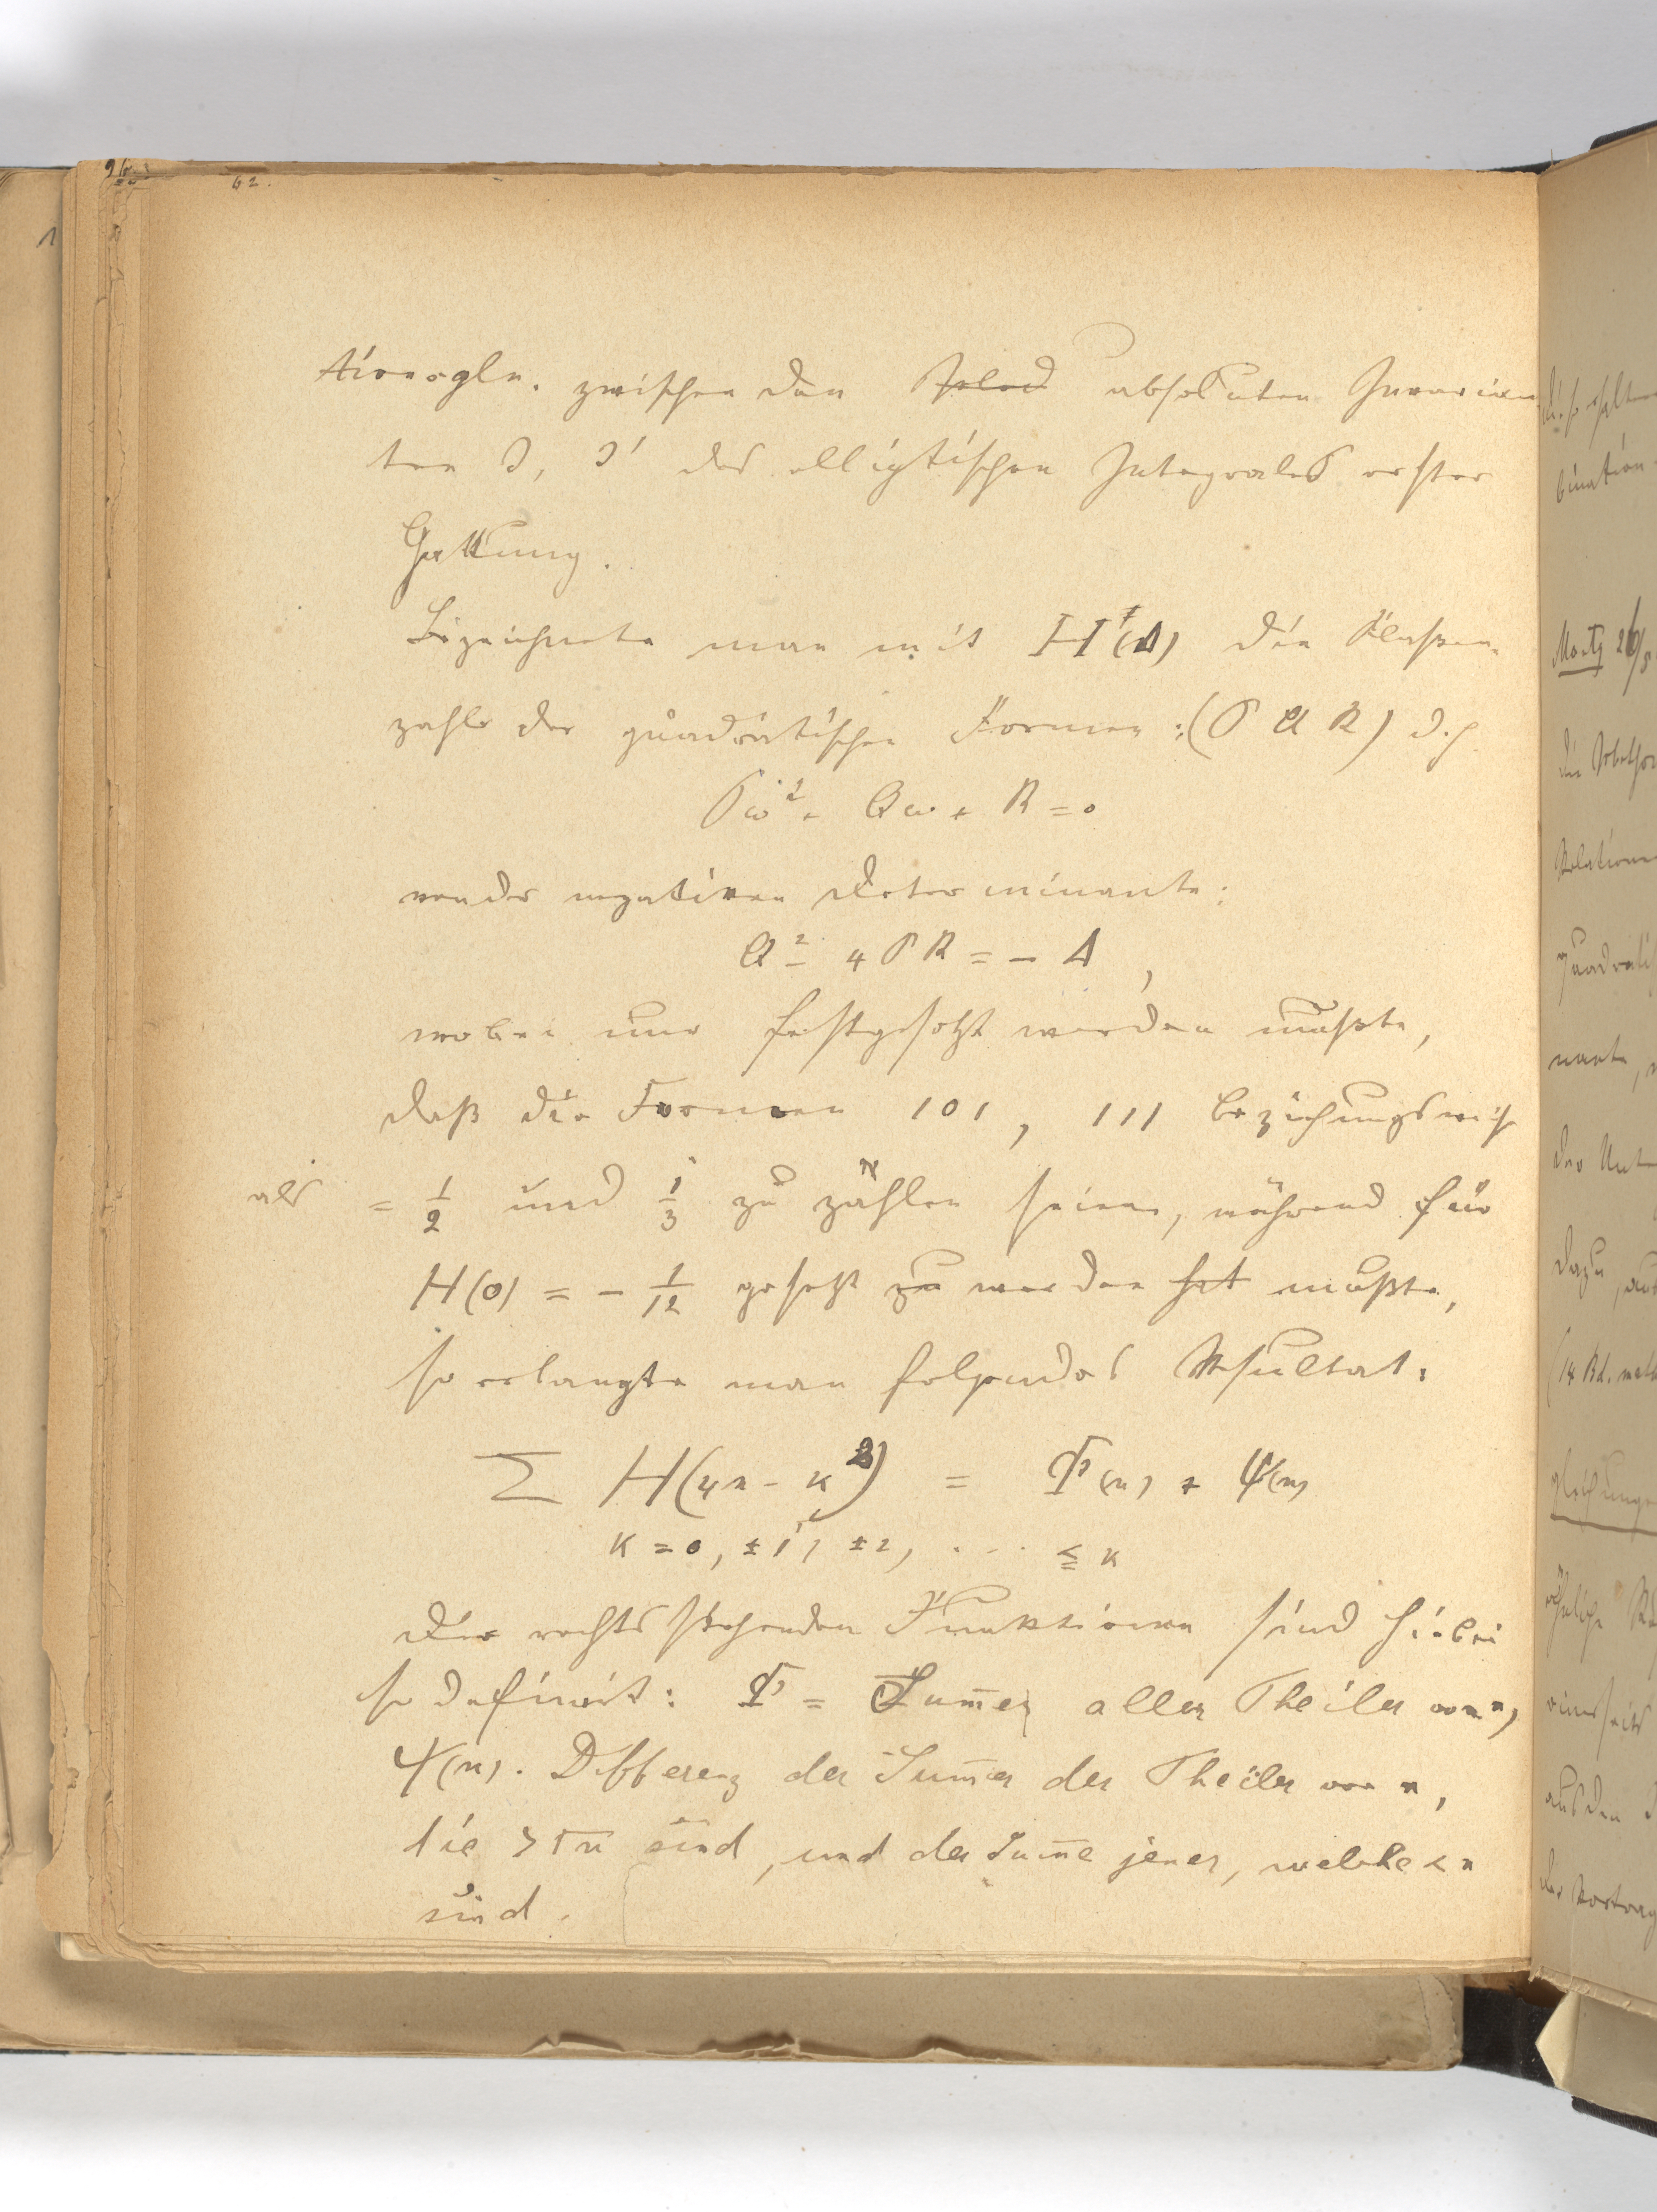 62.
tionsgln. zwischen den absoluten Invarian
ten J, J' des elliptischen Integrales erster
Gattung.
Bezeichnete man mit H(Δ) die Klassen-
zahl der quadratischen Formen: (P Q R) d.h.
Pω² + Qω + R = 0
von der negativen Determinante:
Q² - 4PR = - Δ,
wobei nur festgesetzt werden mußte,
daß die Formen 101, 111 beziehungsweise
als = 1/2 und 1/3 zu zählen seien, während für
H(0) = - 1/12 gesetzt zu werden hat mußte,
so erlangte man folgendes Resultat:
Σ H(4n - κ²) = Φ(n) + Ψ(n)
κ = 0, ±1, ±2, . . . ≦ κ
Die rechts stehenden Funktionen sind hiebei
so definirt: Φ = Sum̅e aller Theiler von n,
Ψ(n). Differenz der Sum̅e der Theiler von n,
die > √n sind, und der Sum̅e jener, welche < n
sind.